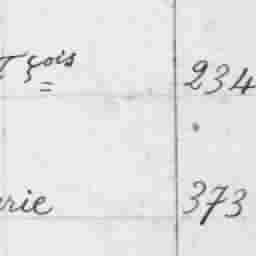 çois 234
rie 373